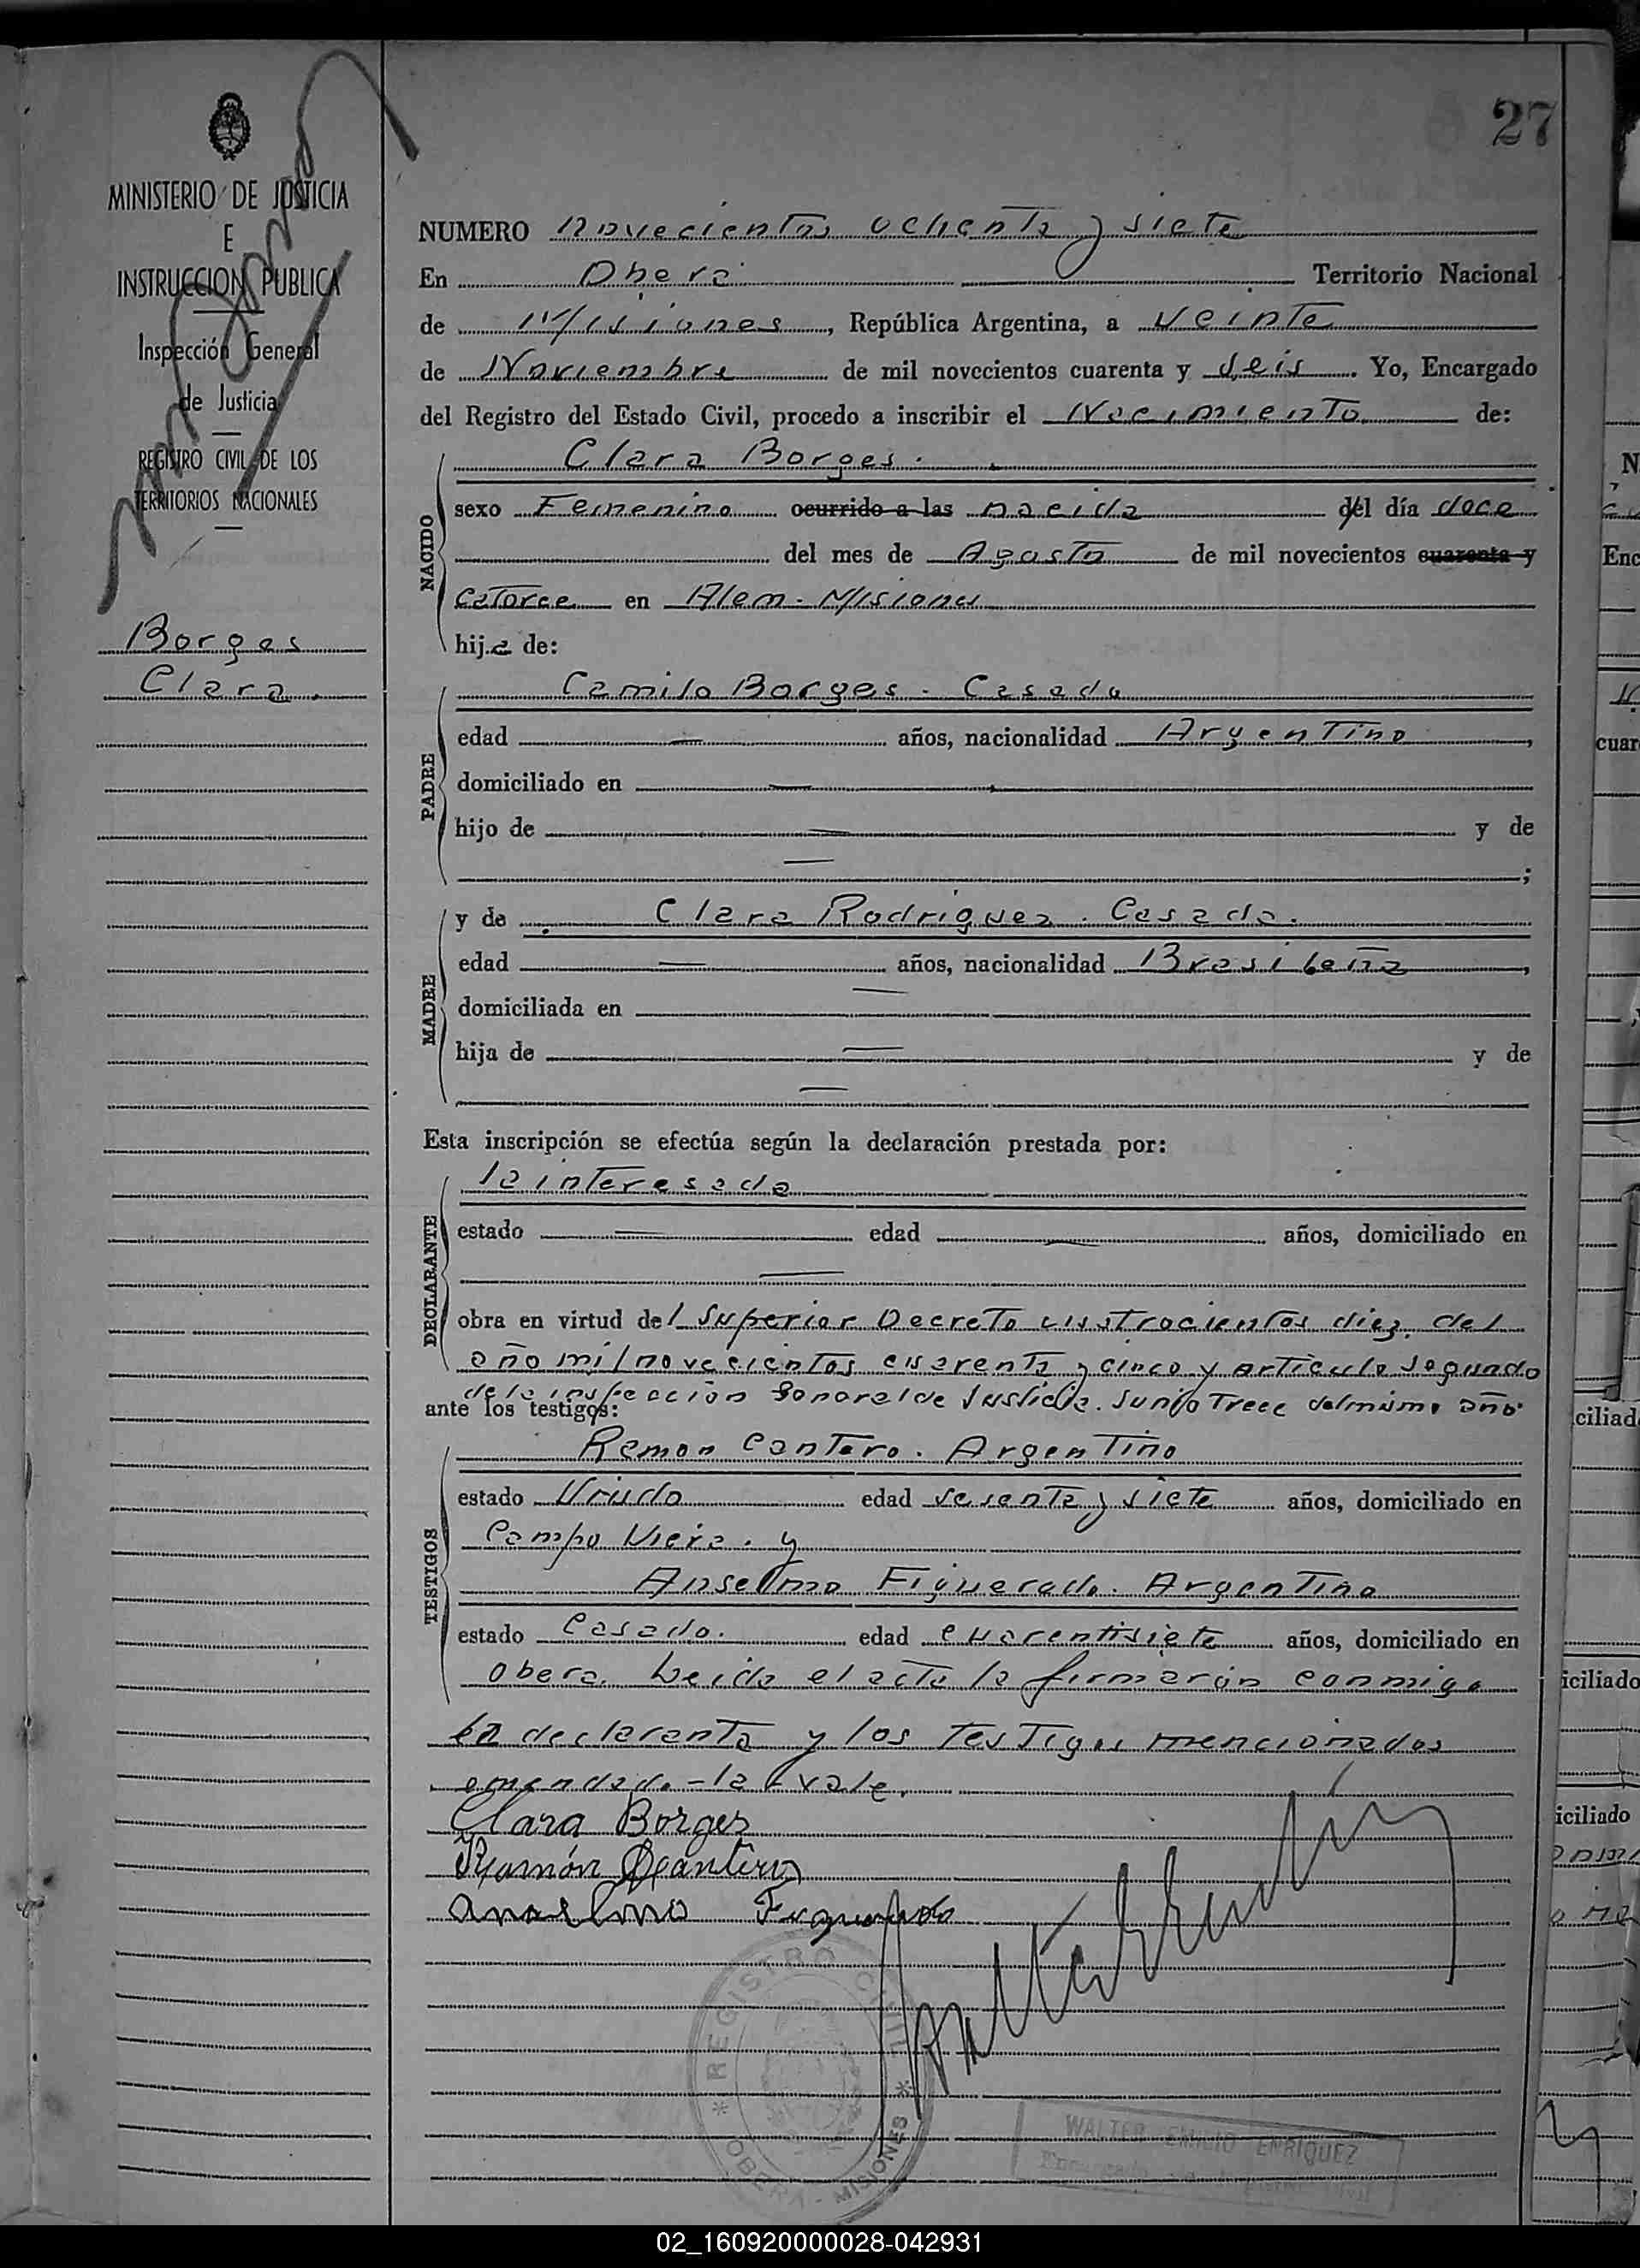 27
MINISTERIO DE JUSTICIA
E
INSTRUCCION PUBLICA
Inspección General
de Justicia
REGISTRO CIVIL DE LOS
TERRITORIOS NACIONALES
Borges
Clara.
NUMERO novecientos ochenta y siete
En Oberá Territorio Nacional
de Misiones, República Argentina, a veinte
de Noviembre de mil novecientos cuarenta y seis. Yo, Encargado
del Registro del Estado Civil, procedo a inscribir el Nacimiento de:
NACIDO
Clara Borges.
sexo Femenino ocurrido a las nacida del día doce
del mes de Agosto de mil novecientos cuarenta y
catorce en Alem - Misiones
hija de:
PADRE
Camilo Borges - Casado
edad — años, nacionalidad Argentino,
domiciliado en —
hijo de — y de
— ;
MADRE
y de Clara Rodriguez. Casada.
edad — años, nacionalidad Brasileña,
domiciliada en —
hija de — y de
—
Esta inscripción se efectúa según la declaración prestada por:
DECLARANTE
la interesada
estado — edad — años, domiciliado en
—
obra en virtud del Superior Decreto cuatrocientos diez del
año mil novecientos cuarenta y cinco y articulo segundo
de la inspeccion General de Justicia. Junio Trece del mismo año
ante los testigos:
TESTIGOS
Ramon Cantero. Argentino
estado Viudo edad sesenta y siete años, domiciliado en
Campo Viera. y
Anselmo Figueredo. Argentino
estado Casado. edad cuarentisiete años, domiciliado en
Obera. Leida el acta la firmarón conmigo
la declaranta y los Testigos mencionados
emendado - la - vale.
Clara Borges
Ramón Cantero
Anselmo Figueredo
REGISTRO CIVIL
OBERA - MISIONES
WALTER EMILIO ENRIQUEZ
02_160920000028-042931